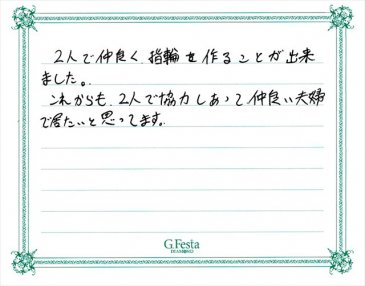 2人で仲良く、指輪を作ることが出来
ました。
これからも、2人で協力しあって仲良い夫婦
で居たいと思ってます。
G.Festa
DIAMOND